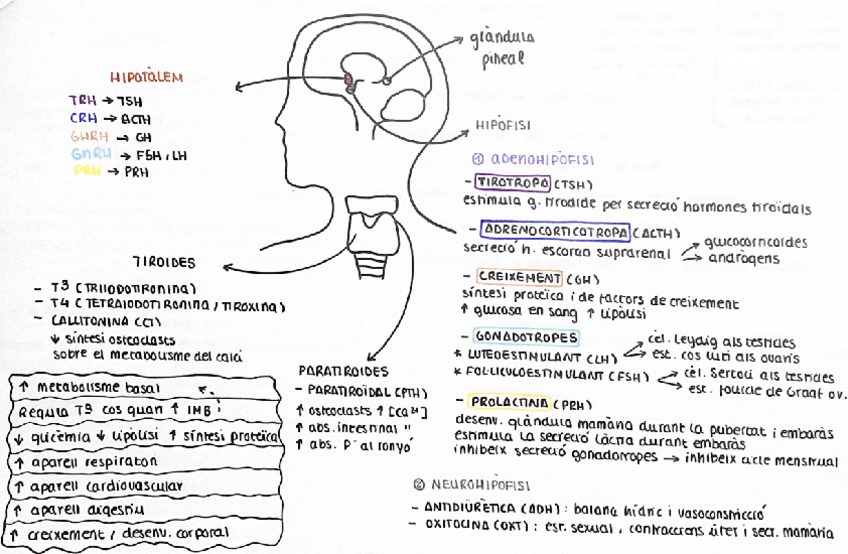 glàndula
pineal
HIPOTÀLEM
TRH → TSH
CRH → ACTH
GHRH → GH
GnRH → FSH, LH
PRH → PRH
HIPÒFISI
① ADENOHIPÒFISI
- TIROTROPA (TSH)
estimula g. tiroide per secreció hormones tiroidals
- ADRENOCORTICOTROPA (ACTH)
secreció h. escorça suprarenal → glucocorticoides
→ andrògens
- CREIXEMENT (GH)
síntesi proteïca i de factors de creixement
↑ glucosa en sang ↑ lipòlisi
- GONADOTROPES
* LUTEOESTIMULANT (LH) → cèl. Leydig als testicles
→ est. cos luti als ovaris
* FOL·LICULOESTIMULANT (FSH) → cèl. Sertoli als testicles
→ est. fol·licle de Graaf ov.
- PROLACTINA (PRH)
desenv. glàndula mamària durant la pubertat i embaràs
estimula la secreció làctia durant embaràs
inhibeix secreció gonadotropes → inhibeix cicle menstrual
② NEUROHIPÒFISI
- ANTIDIÜRÈTICA (ADH) : balanç hídric i vasoconstricció
- OXITOCINA (OXT) : est. sexual, contraccions úter i secr. mamària
TIROIDES
- T3 (TRIIODOTIRONINA)
- T4 (TETRAIODOTIRONINA / TIROXINA)
- CALCITONINA (CT)
↓ síntesi osteoclasts
sobre el metabolisme del calci
↑ metabolisme basal
Regula Tª cos quan ↑ IMB
↓ glicèmia ↓ lipòlisi ↑ síntesi proteïca
↑ aparell respiratori
↑ aparell cardiovascular
↑ aparell digestiu
↑ creixement i desenv. corporal
PARATIROIDES
- PARATIROÏDAL (PTH)
↑ osteoclasts ↑ [Ca²⁺]
↑ abs. intestinal "
↑ abs. P⁻ al ronyó